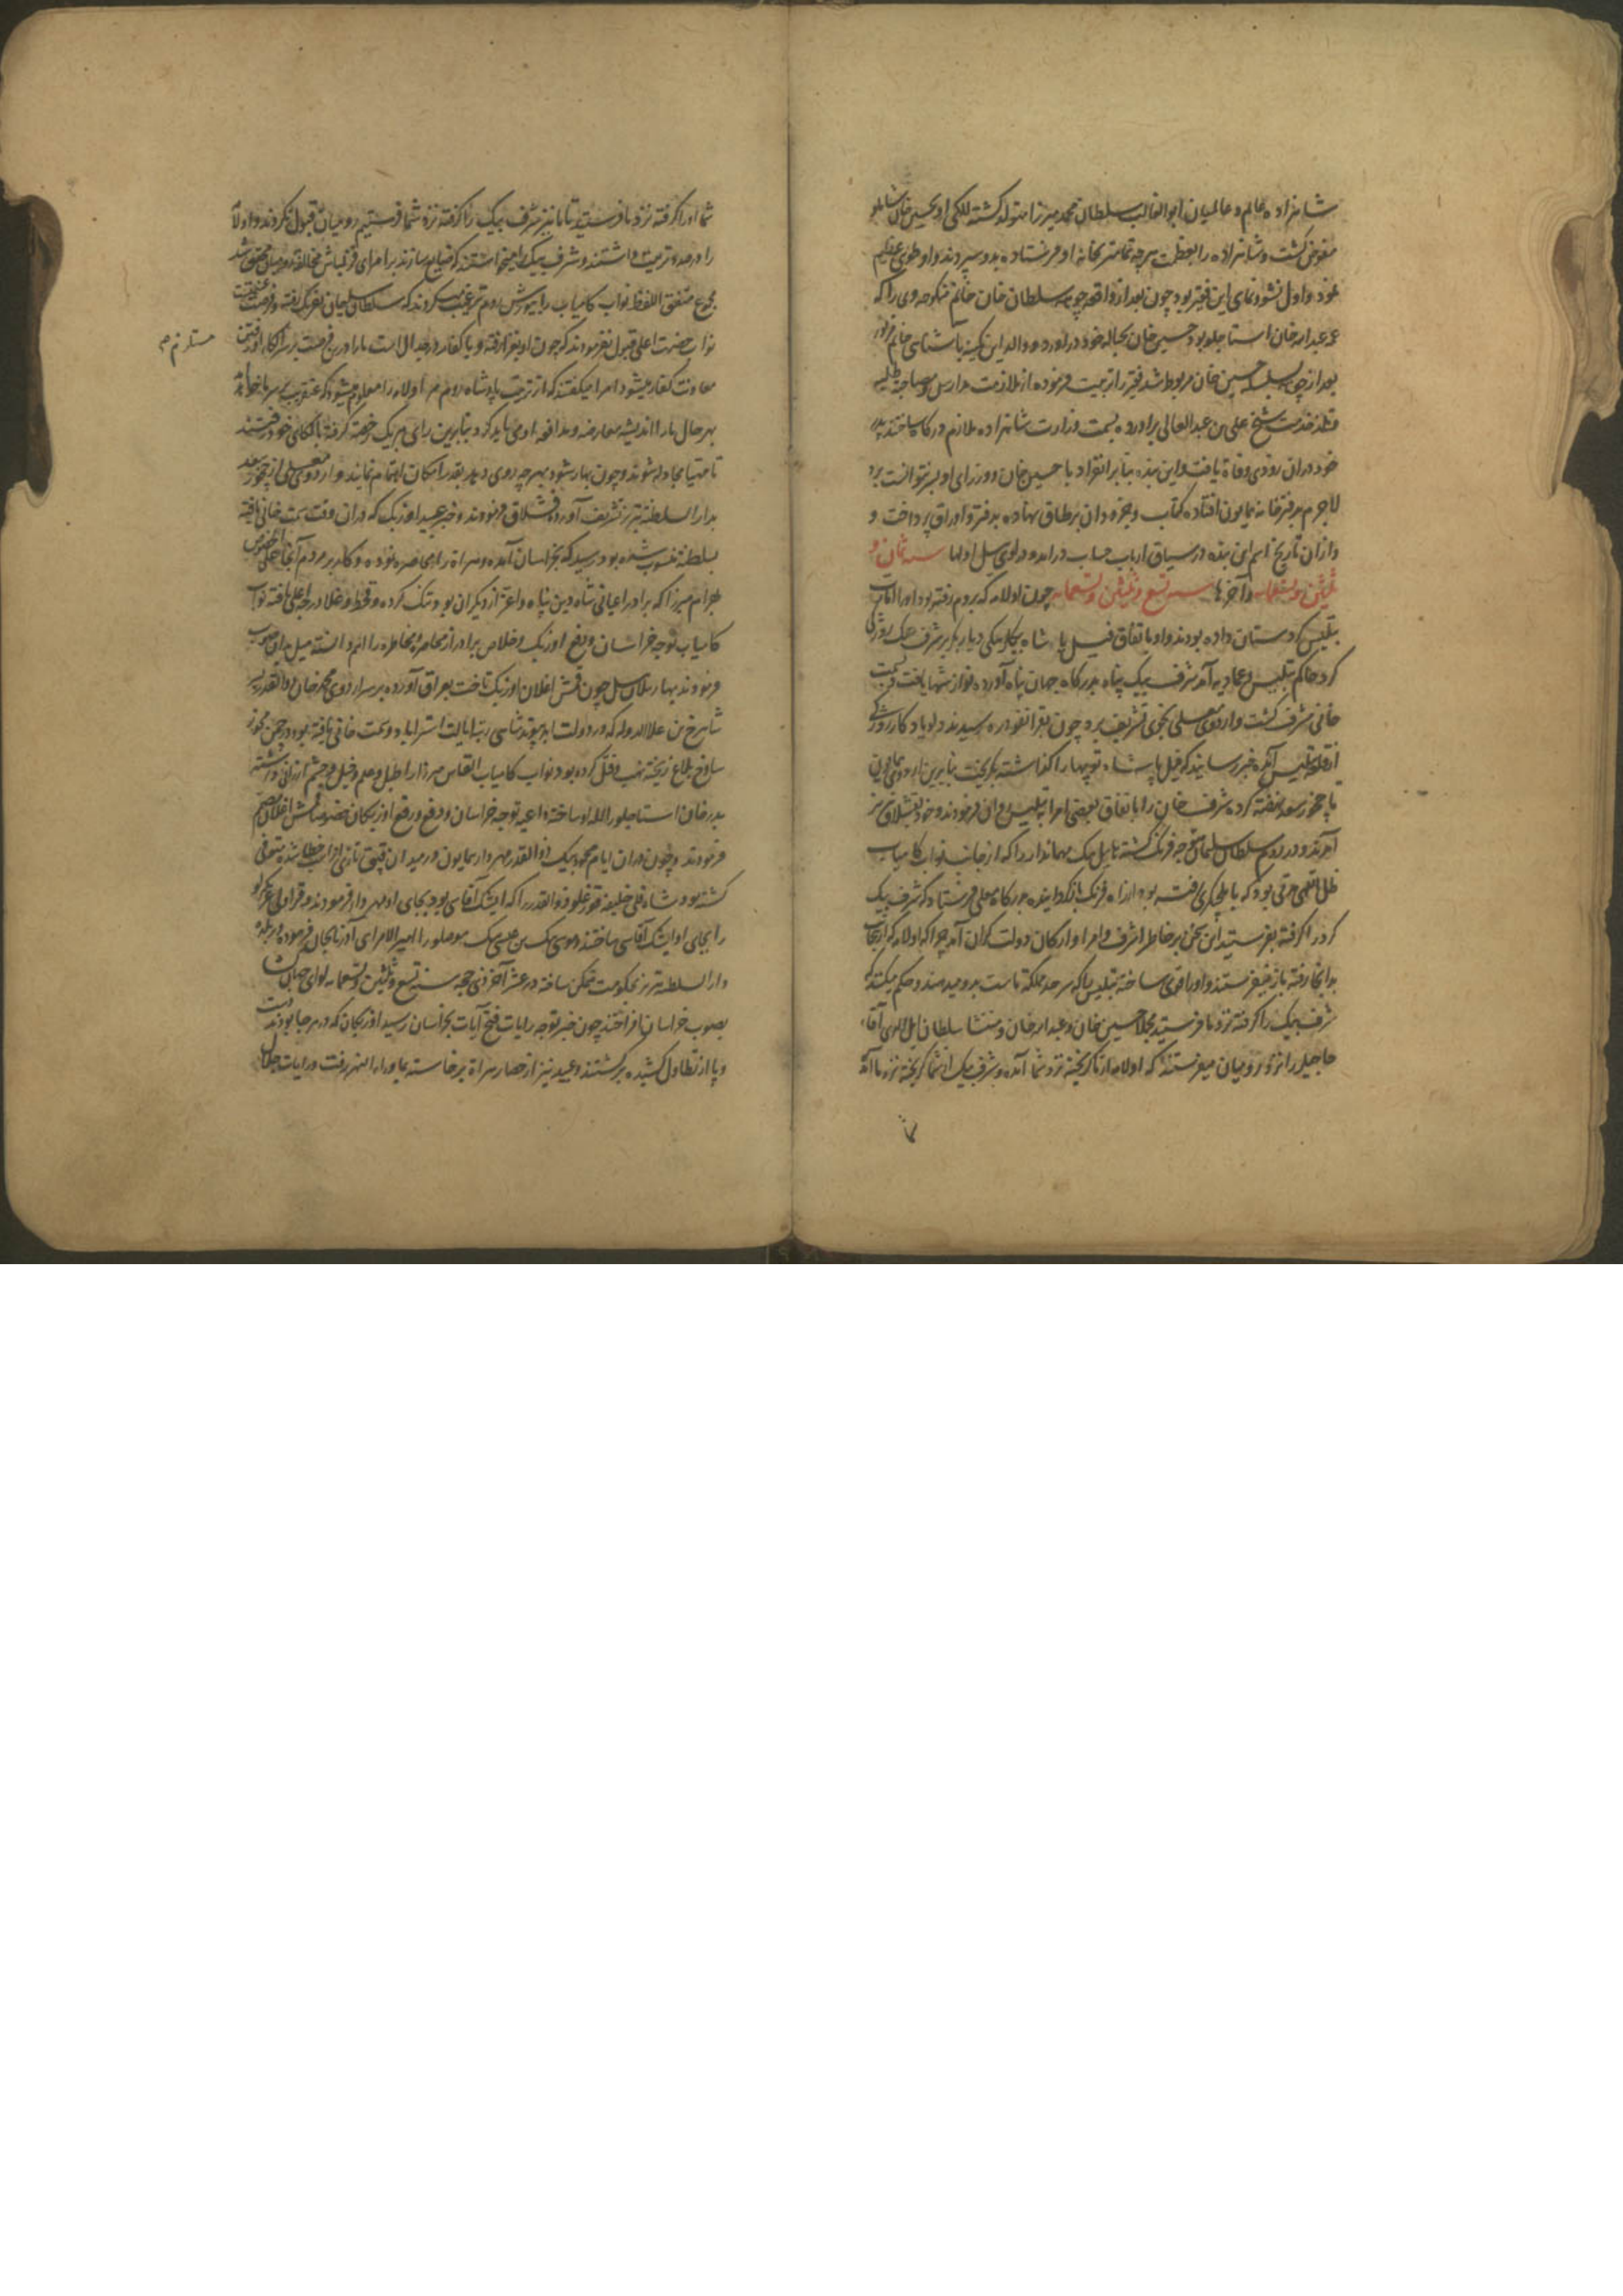 شاهزاده عالم و عالمیان ابوالغالب سلطان محمد میرزا متولد گشته للگی او بحسین خان شاملو
مفوض گشت و شاهزاده را بعظمت هرچه تمامتر بخانه او فرستاده بدو سپردند و او طوی عظیم
نمود و اول نشو و نمای این فقیر بود چون بعد از واقعه چوهه سلطان خان خانم منکوحه وی را که
عم عبدالله خان استاجلو بود حسین خان بحباله خود در اورد و والد این کمینه باشنای خانم
بعد از چوهه سلطان بحسین خان مربوط شد فقیر را تربیت فرموده از ملازمت مدارس و مصاحبت طلبه
خدمت شیخ علی بن عبدالعالی براورده بسمت وزارت شاهزاده ملازم درگاه ساختند پدر
خود دران زودی وفاة یافت و این بنده بنابر انفراد با حسین خان و وزرای او بسر نتوانست برد
لاجرم بدفترخانه همایون افتاده کتاب و جزودان بر طاق نهاده بدفتر و اوراق پرداخت و
و ازان تاریخ اسم این بنده در سیاق ارباب حساب در امد و در لوی ییل اولها سنه ثمان و
ثلثین و تسعمایه و آخرها سنه تسع و ثلثین و تسعمایه چون اولامه که بروم رفته بود او را ایالت
بتلیس کردستان داده بودند و او باتفاق فیل پاشا بیکلربیکی دیاربکر بر سر شرف بیک روزکی
کرد حاکم بتلیس و عمادیه آمد شرف بیک پناه بدرگاه جهان پناه آورده نوازشها یافت و بسمت
خانی مشرف گشت و اردوی معلی بخوی تشریف برد چون بقرانقودره رسیدند دلو یادگار روزکی
از قلعه بتلیس آمده خبر رسانید که فیل پاشا توپها را گذاشته بگریخت بنابرین اردوی همایون
تا چخور سعد نهضت کرده شرف خان را باتفاق بعضی امرا بتلیس روان فرمودند و خود بقشلاق تبریز
آمدند و در روم سلطان سلیمان متوجه فرنگ گشته نابیل بیک مهماندار را که از جانب نواب کامیاب
ظل اللهی مدتی بود که بایلچیگری رفته بود از راه فرنگ بازگردانیده بدرگاه معلی فرستاد که شرف بیک
کرد را گرفته بفرستید این سخن بر خاطر اشرف و امرا و ارکان دولت گران آمد چرا که اولامه که از اینجا
بدانجا رفته باز نمیفرستند و او را قوی ساخته بتلیس را که سرحد مملکت ماست بدو میدهند و حکم میکنند که
شرف بیک را گرفته نزد ما فرستید مجملا حسین خان و عبدالله خان و منتشا سلطان ایل اللهی آقاء
حاجیلر را نزد رومیان میفرستند که اولامه از ما گریخته نزد شما آمده و شرف بیک از شما گریخته نزد ما آمد
شما او را گرفته نزد ما فرستید تا ما نیز شرف بیک را گرفته نزد شما فرستیم رومیان قبول نکردند و اولامه
را در صدد تربیت داشتند و شرف بیک را میخواستند که ضایع سازند بر امرای قزلباش مخالفت رومیان محقق شد
مجموع متفق اللفظ نواب کامیاب را بیورش روم ترغیب کردند که سلطان سلیمان بفرنگ رفته و فرصت غنیمت
نواب حضرت اعلی قبول نفرمودند که چون او بغزا رفته و با کفار در جدال است ما را درین فرصت بر سر الکای او رفتن
مستلزم صح
معاونت کفار میشود امرا میگفتند که از تربیت پادشاه روم مر اولامه را معلوم میشود که عنقریب بر سر ما خواهد آمد
بهرحال ما را اندیشه معارضه و مدافعه او می باید کرد و بنابرین رای هر یک رخصت گرفته بالکای خود رفتند
تا مهیا مجادله شوند و چون بهار شود بهر چه روی دهد بقدر امکان اهتمام نمایند و اردوی معلی از چخور سعد
بدار السلطنه تبریز تشریف آورده قشلاق فرمودند و خبر عبید اوزبک که دران وقت بسمت خانی یافته
بسلطنه منسوب شده بود رسید که بخراسان آمده و هراة را محاصره نموده و کار بر مردم آنجا علی الخصوص
بهرام میرزا که برادر اعیانی شاه دین پناه و اعز از دیگران بود تنگ کرده و قحط و غلا درجه اعلی یافته نواب
کامیاب توجه خراسان و دفع اوزبک و خلاص برادر از محاصره و مخاطره را اهم دانسته میل بدان صوب
فرمودند بهار ییلان ییل چون قمش اغلان اوزبک تاخت بعراق آورده بر سر اردوی محمد خان ذوالقدر پسر
شاهرخ بن علاءالدوله که در دولت ابد پیوند شاهی رتبه ایالت استراباد و سمت خانی یافته بود در چمن
ساوخ بلاغ ریخته نهب و قتل کرده بود نواب کامیاب القاس میرزا را طبل و علم و خیل و حشم ارزانی داشته
بدر خان استاجلو را لله او ساخته داعیه توجه خراسان و دفع و رفع اوزبکان خصوصا قمش اغلان تصمیم
فرمودند و چون دران ایام محمد بیک ذوالقدر مهردار همایون در میدان قپق تازی از اسب خطا شده متوفی
گشته بود شاه قلی خلیفه قورغلو ذوالقدر را که ایشک آقاسی بود بجای او مهردار فرمودند و قراولی عربکرلو
را بجای او ایشک آقاسی ساختند و موسی بیک بن عیسی بیک موصلو را امیر الامرای آذربایجان فرموده
دار السلطنه تبریز بحکومت متمکن ساخته در عشر آخر ذی حجه سنه تسع و ثلثین و تسعمایه لوای جهانگشا
بصوب خراسان افراختند چون خبر توجه رایات فتح آیات بخراسان رسید اوزبکان که در هر جا بودند دست
و پا از تطاول کشیده برگشتند و عبید نیز از حصار هراة برخاسته بماوراء النهر رفت و رایات جلال